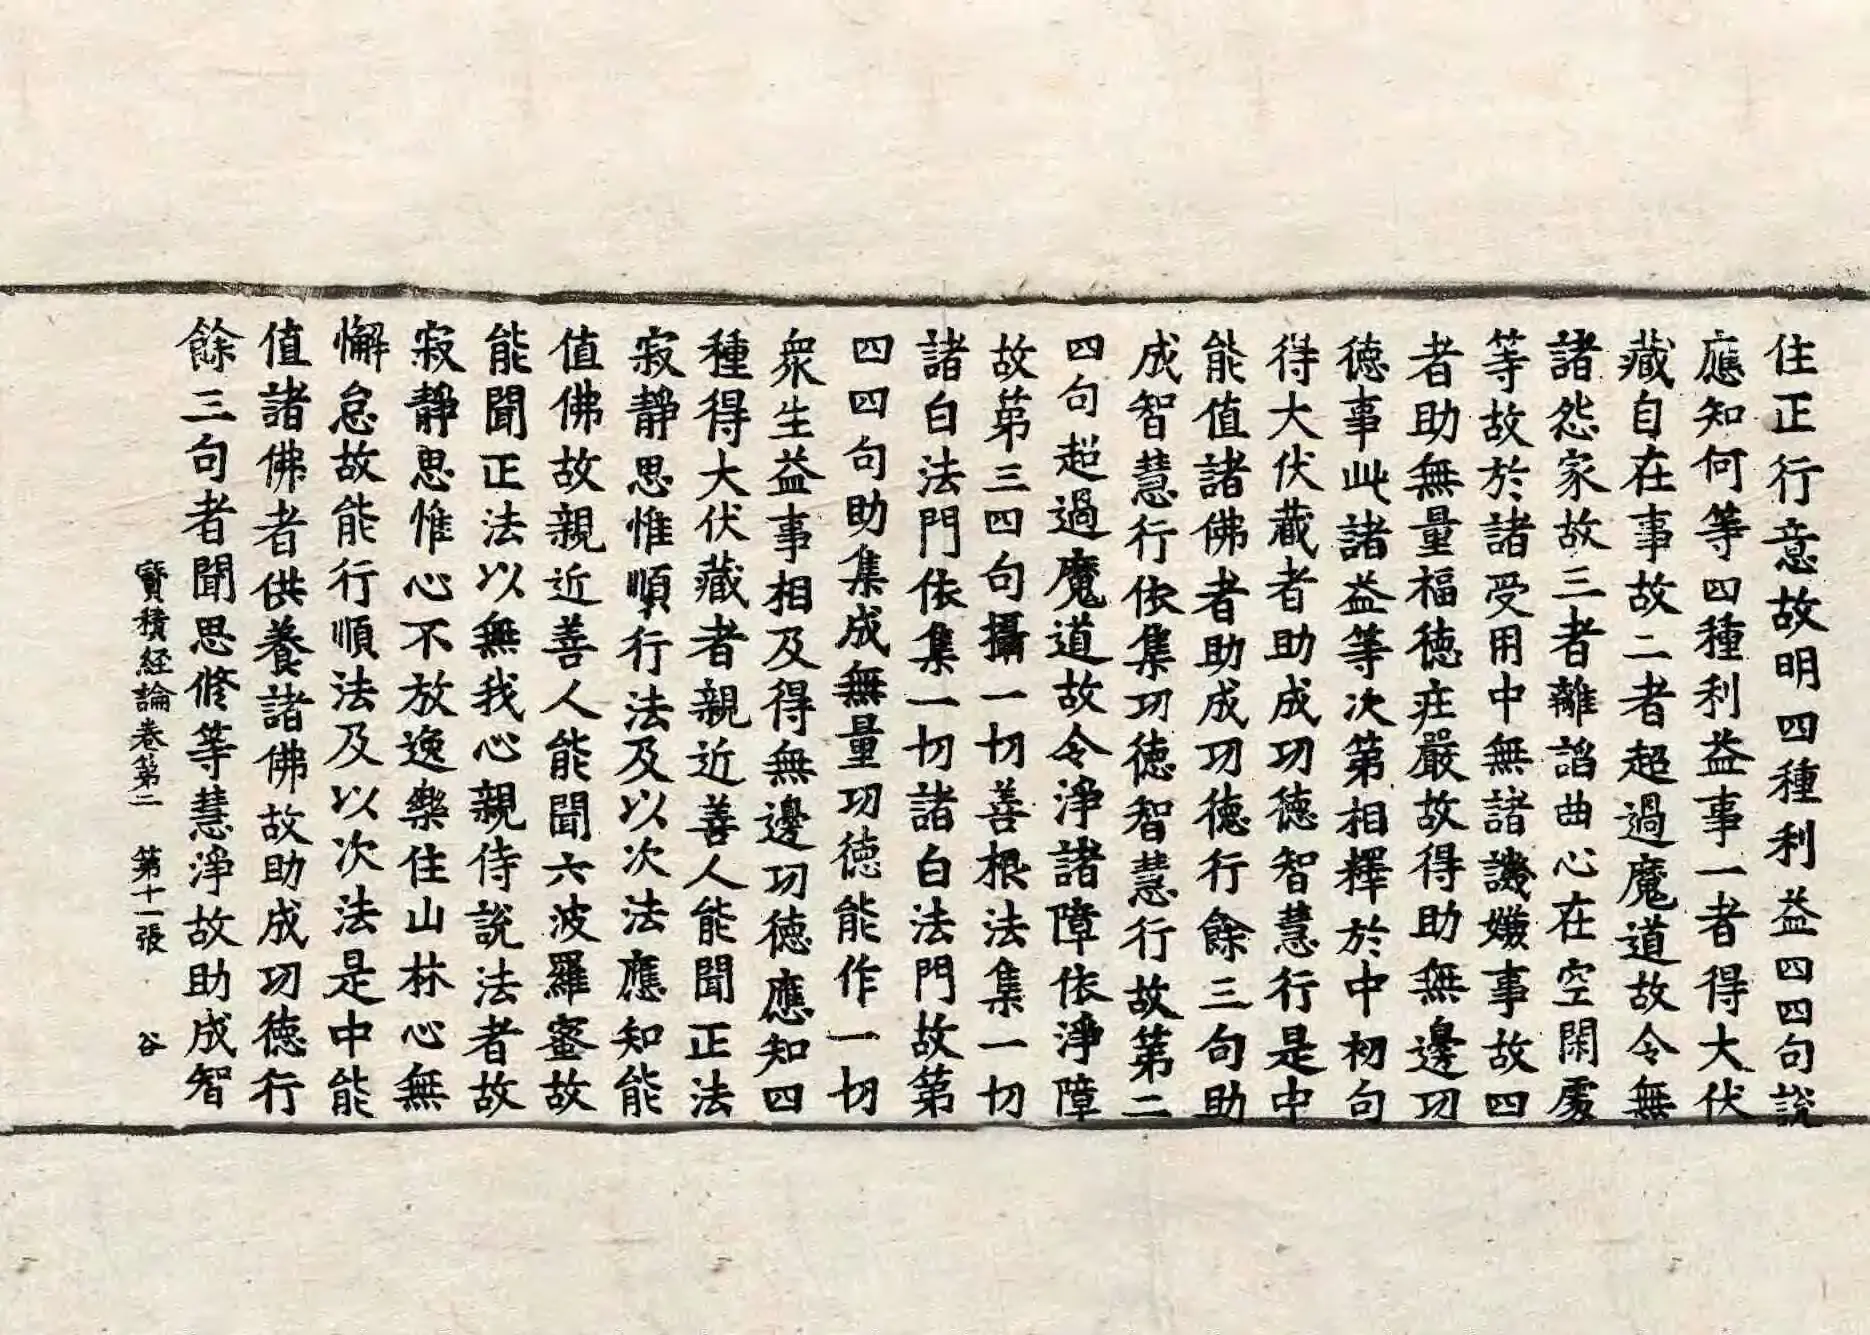 住正行意故明四種利益四四句說
應知何等四種利益事一者得大伏
藏自在事故二者超過魔道故令無
諸怨家故三者離諂曲心在空閑處
等故於諸受用中無諸譏嫌事故四
者助無量福德莊嚴故得助無邊功
德事此諸益等次第相釋於中初句
得大伏藏者助成功德智慧行是中
能值諸佛者助成功德行餘三句助
成智慧行依集功德智慧行故第二
四句超過魔道故令淨諸障依淨障
故第三四句攝一切善根法集一切
諸白法門依集一切諸白法門故第
四四句助集成無量功德能作一切
衆生益事相及得無邊功德應知四
種得大伏藏者親近善人能聞正法
寂靜思惟順行法及以次法應知能
值佛故親近善人能聞六波羅蜜故
能聞正法以無我心親侍說法者故
寂靜思惟心不放逸樂住山林心無
懈怠故能行順法及以次法是中能
值諸佛者供養諸佛故助成功德行
餘三句者聞思修等慧淨故助成智
寶積經論卷第二 第十一張 谷